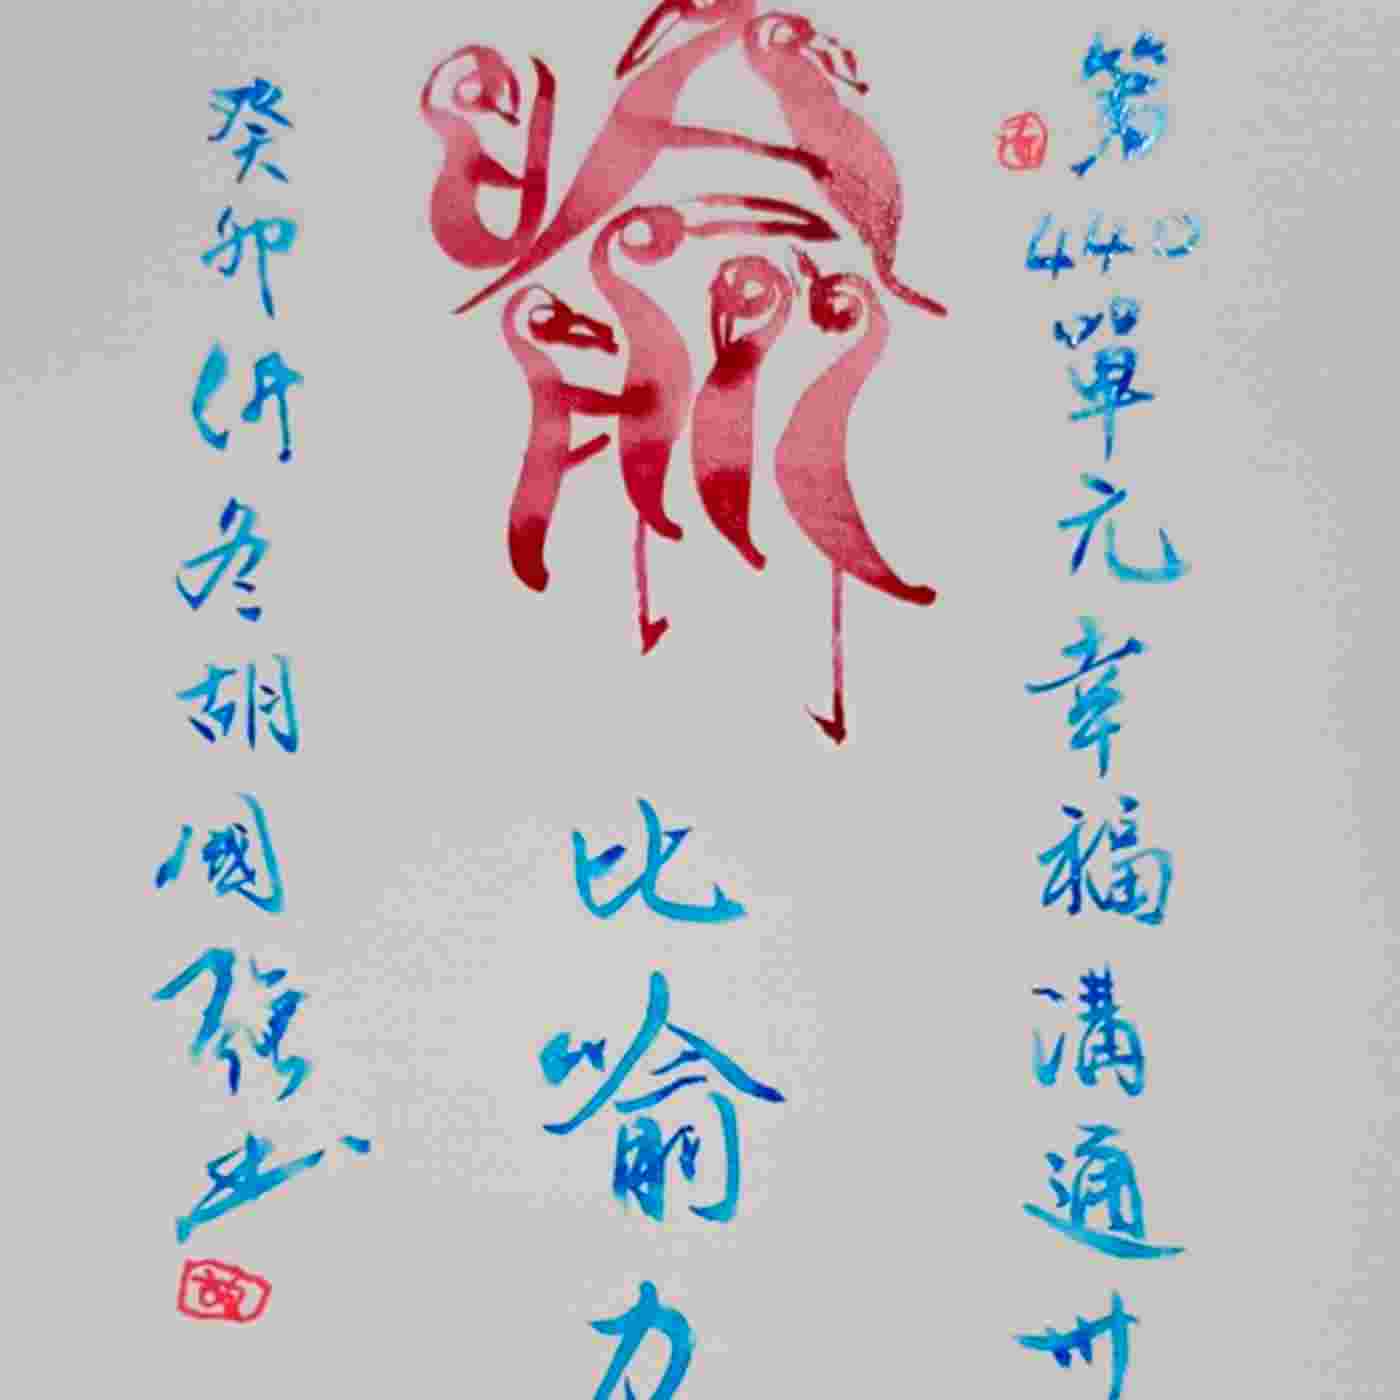 第440單元幸福溝通卅
喻
比喻力
癸卯仲冬胡國強书